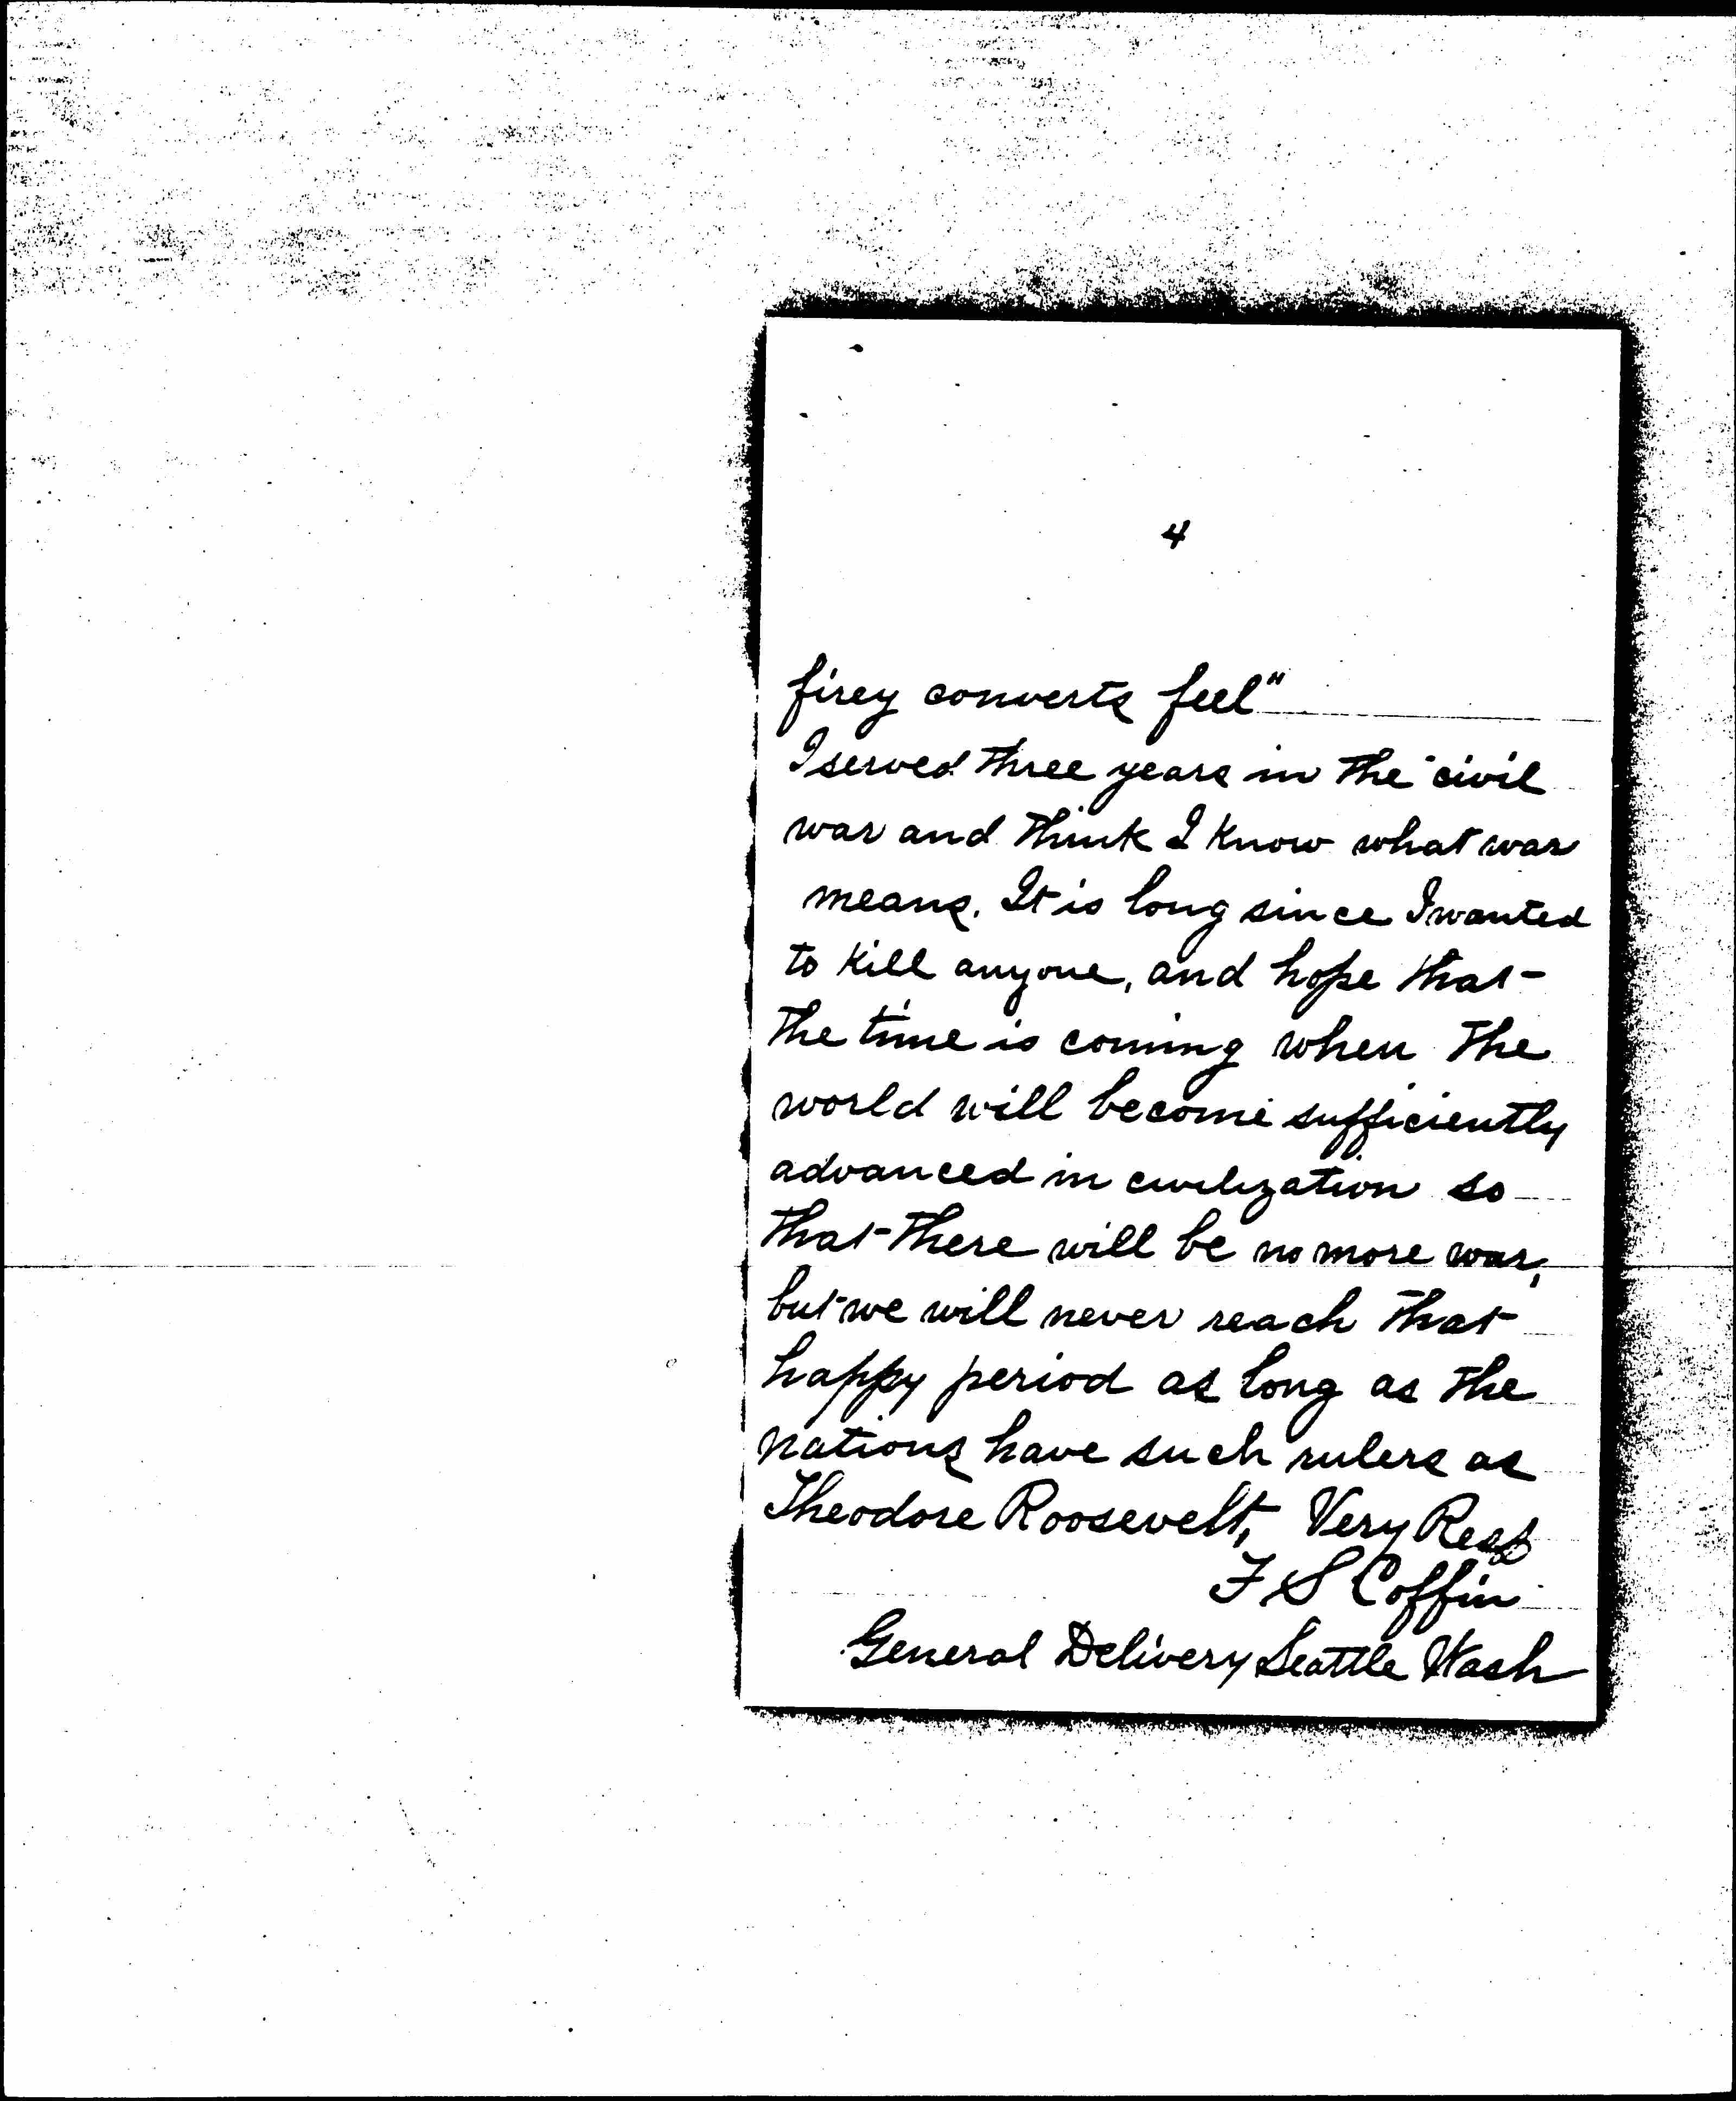 4
firey converts feel"
I served three years in the civil
war and think I know what war
means. It is long since I wanted
to kill anyone, and hope that
the time is coming when the
world will become sufficiently
advanced in civilization so
that there will be no more war,
but we will never reach that
happy period as long as the
nations have such rulers as
Theodore Roosevelt, Very Resp
F S Coffin
General Delivery Seattle Wash